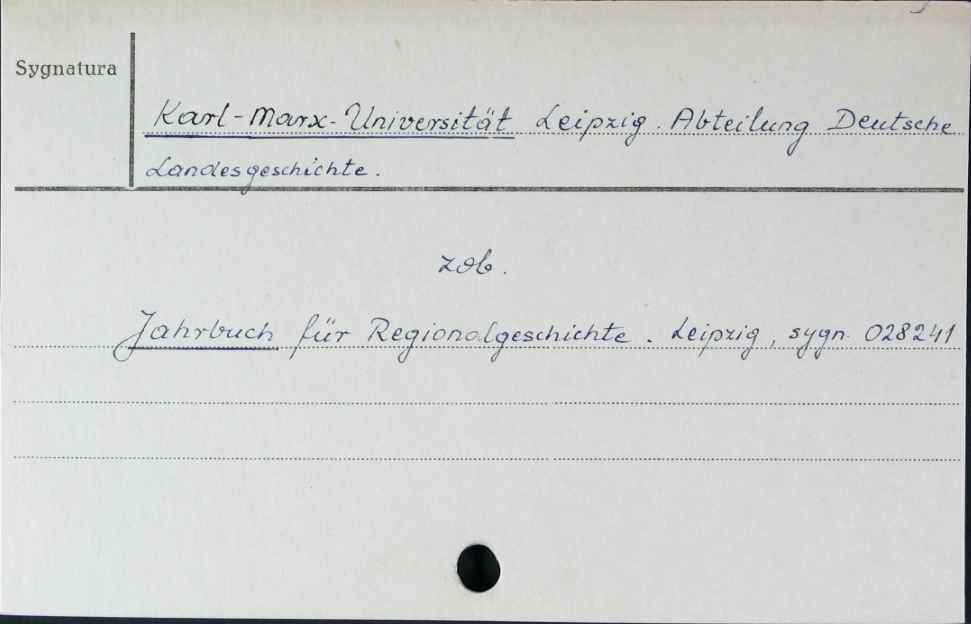 Sygnatura
Karl-Marx-Universität Leipzig. Abteilung Deutsche
Landesgeschichte.
zob.
Jahrbuch für Regionalgeschichte. Leipzig, sygn. 028241